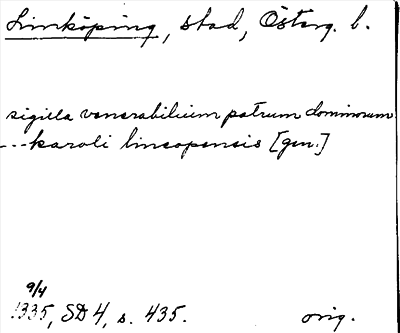 Linköping, stad, Österg. l.
sigilla venerabilium patrum dominorum
--- karoli lincopensis [gen.]
9/4
1335, SD 4, s. 435. orig.